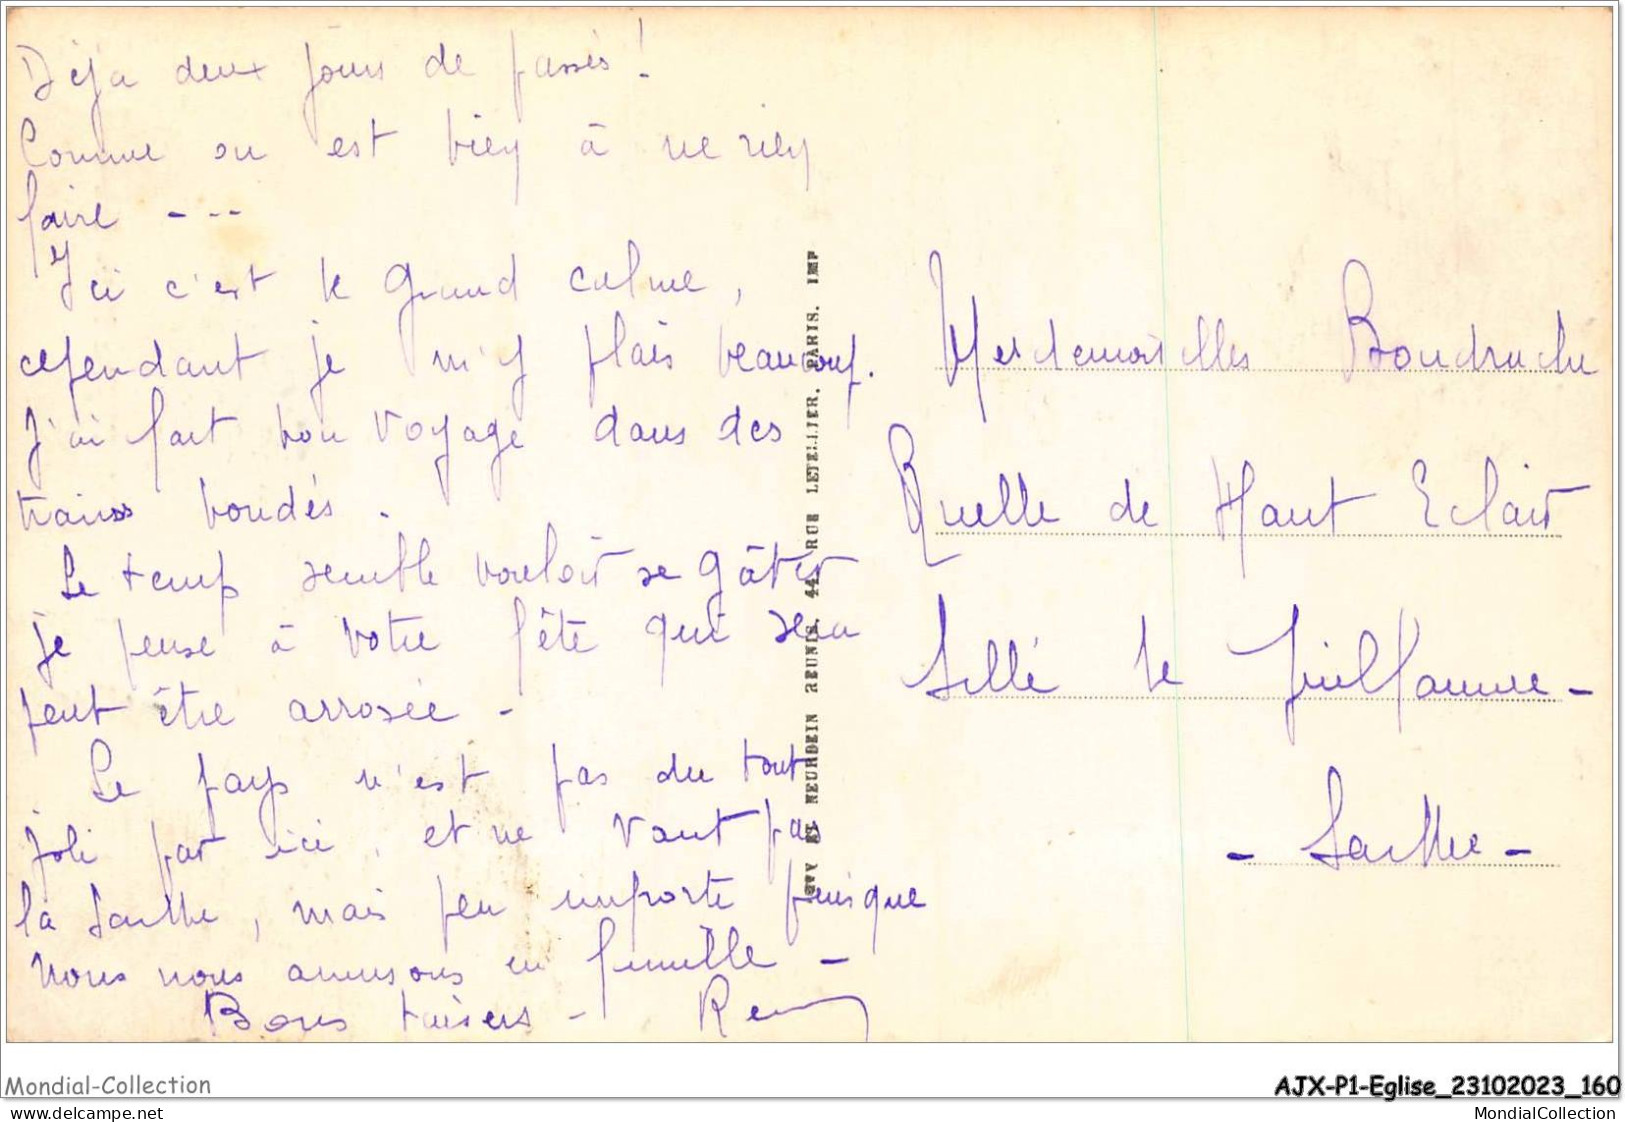 Déjà deux jours de passés !
Comme on est bien à ne rien
faire ---
Ici c'est le grand calme,
cependant je m'y plais beaucoup.
J'ai fait bon voyage dans des
trains bondés.
Le temps semble vouloir se gâter
je pense à votre fête qui sera
peut être arrosée -
Le pays n'est pas du tout
joli par ici, et ne vaut pas
la Sarthe, mais peu importe puisque
nous nous amusons en famille -
Bons baisers -
LEVY ET NEURDEIN REUNIS, 44, RUE LETELLIER, PARIS. IMP
Mesdemoiselles Boudruche
Ruelle de Haut Eclair
Sillé le Guillaume -
- Sarthe -
Mondial-Collection
AJX-P1-Eglise_23102023_160
www.delcampe.net
MondialCollection